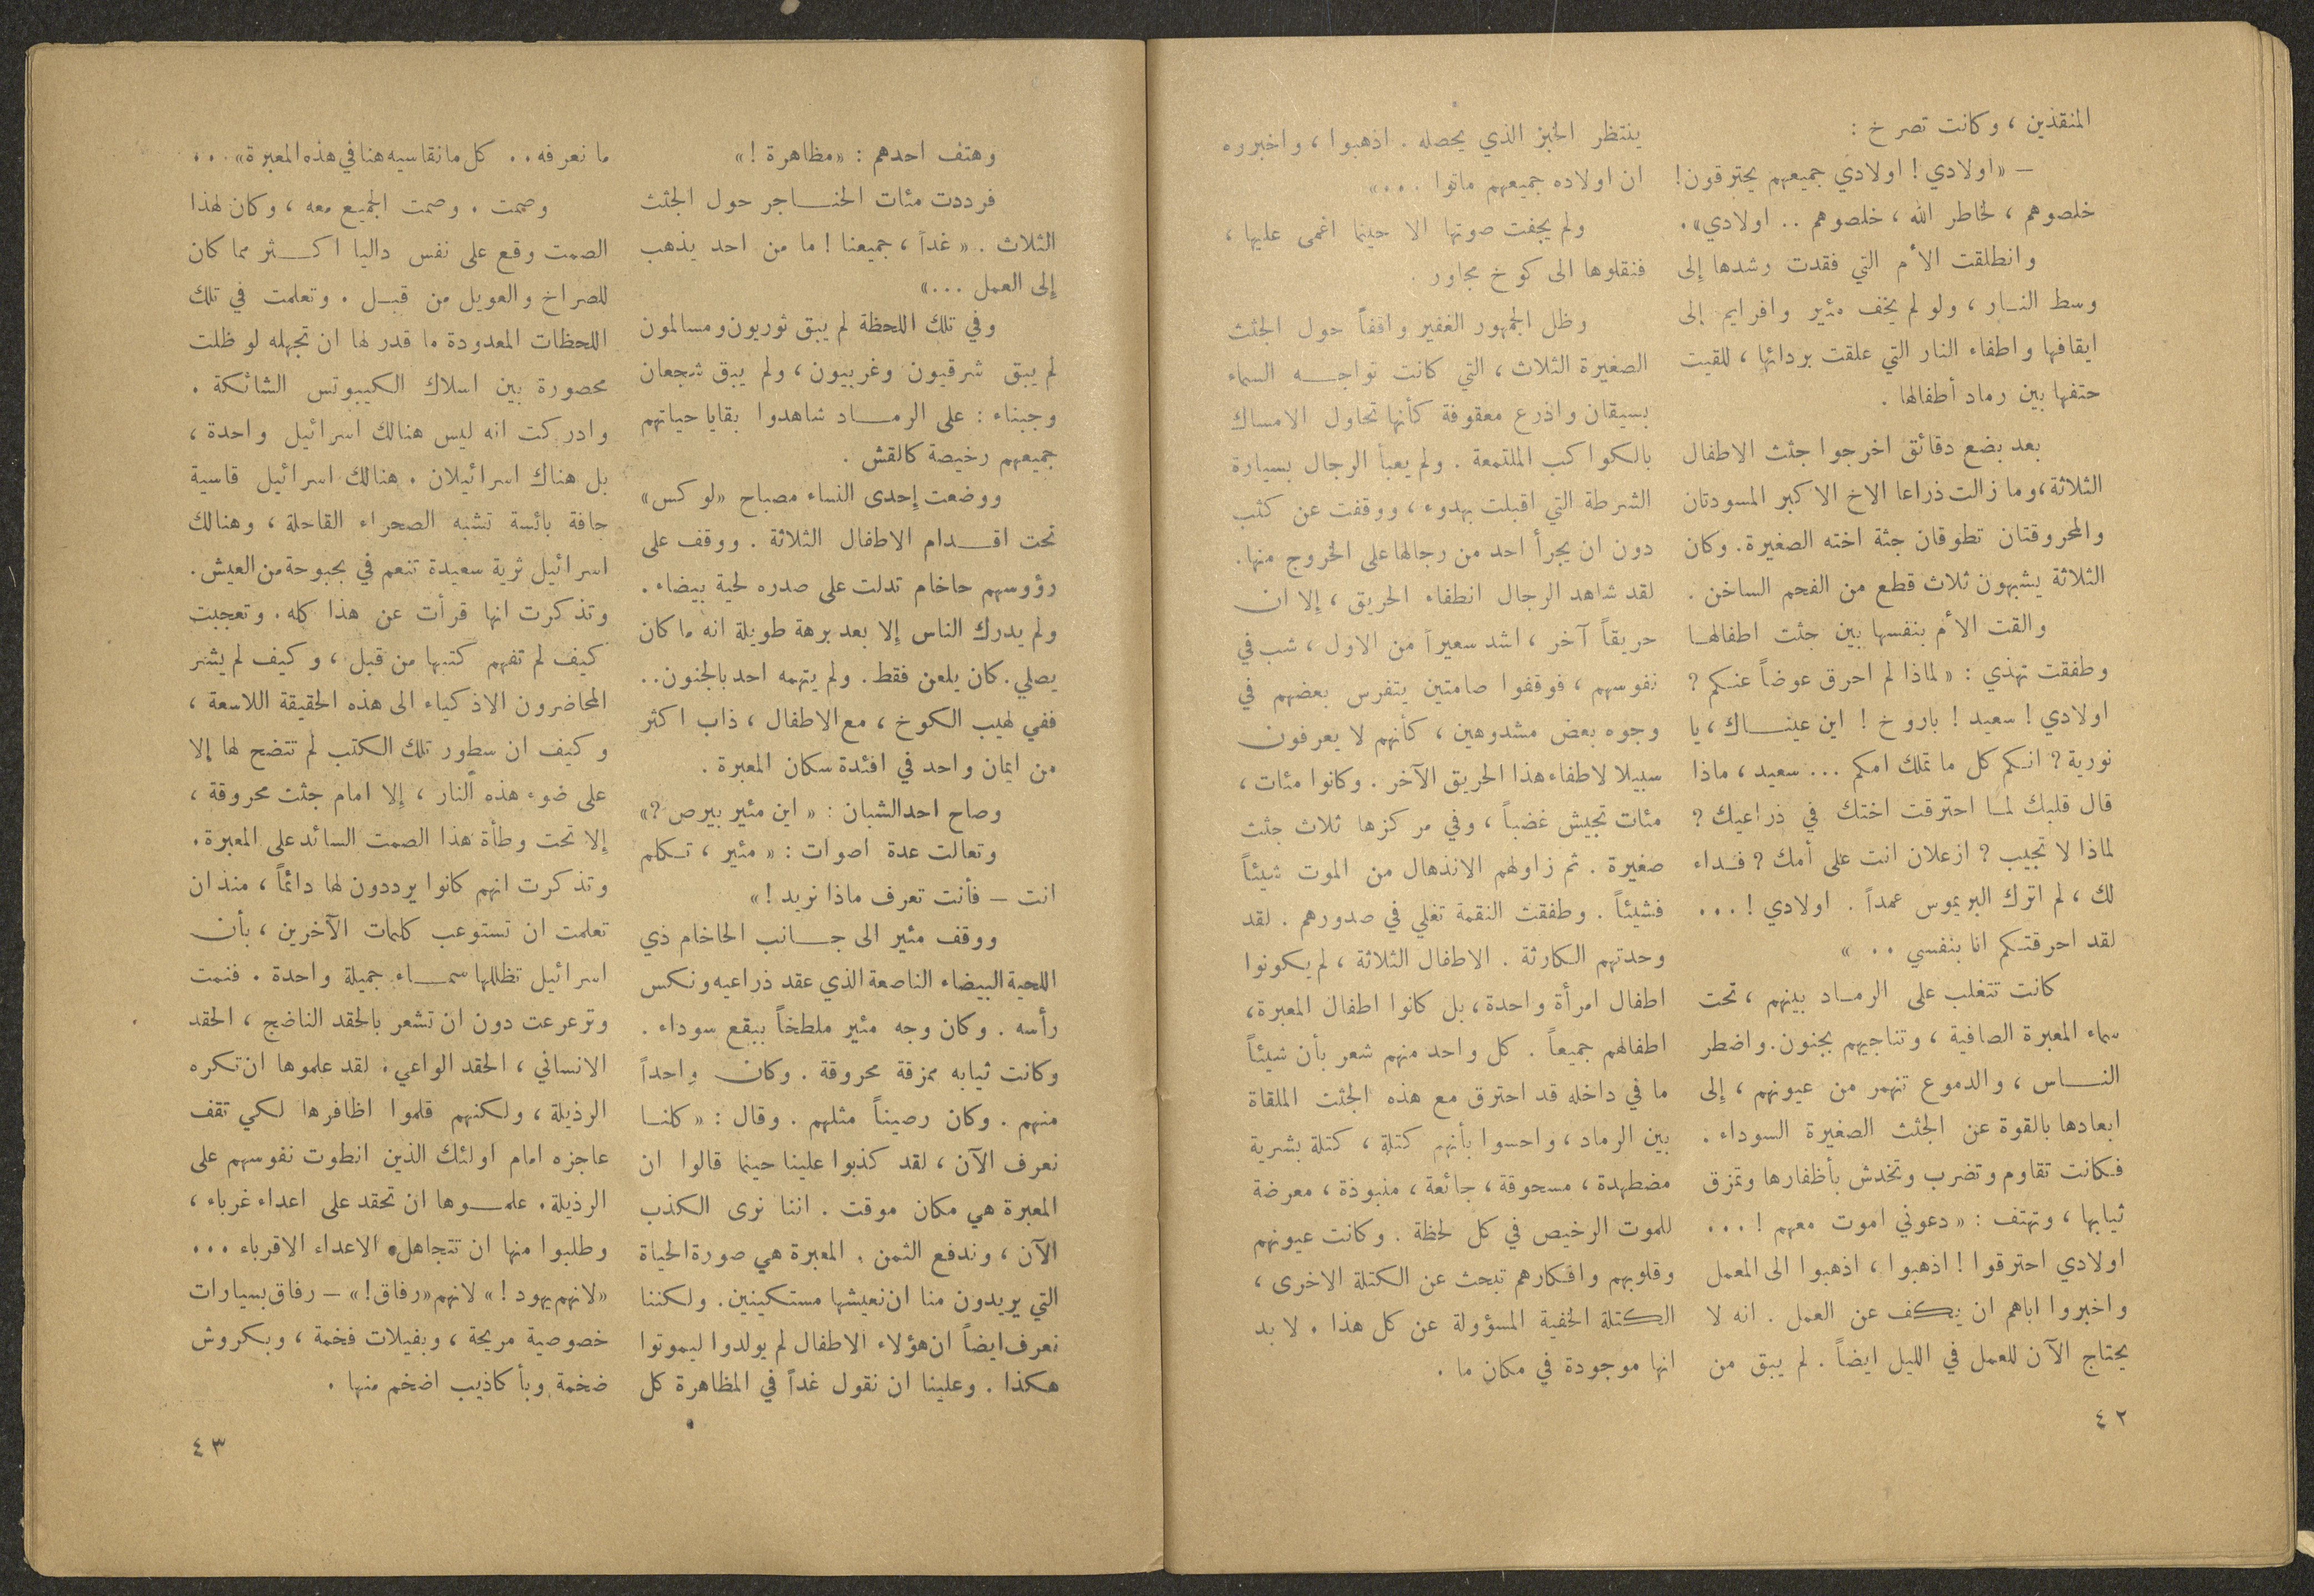 المنقذين ، وكانت تصرخ :
— « اولادي ! اولادي جميعهم يحترقون !
خلصوهم ، لخاطر الله ، خلصوهم .. اولادي » .
وانطلقت الأم التي فقدت رشدها إلى
وسط النار ، ولو لم يخف مئير وافرايم إلى
ايقافها واطفاء النار التي علقت بردائها ، للقيت
حتفها بين رماد أطفالها .
بعد بضع دقائق اخرجوا جثث الاطفال
الثلاثة ، وما زالت ذراعا الاخ الاكبر المسودتان
والمحروقتان تطوقان جثة اخته الصغيرة . وكان
الثلاثة يشبهون ثلاث قطع من الفحم الساخن .
والقت الأم بنفسها بين جثث اطفالها
وطفقت تهذي : « لماذا لم احرق عوضاً عنكم ?
اولادي ! سعيد ! باروخ ! اين عيناك ، يا
نورية ? انكم كل ما تملك امكم ... سعيد ، ماذا
قال قلبك لما احترقت اختك في ذراعيك ?
لماذا لا تجيب ? ازعلان انت على أمك ? فداء
لك ، لم اترك البريموس عمداً . اولادي ! ...
لقد احرقتكم انا بنفسي .. »
كانت تتغلب على الرماد بينهم ، تحت
سماء المعبرة الصافية ، وتناجيهم بجنون . واضطر
الناس ، والدموع تنهمر من عيونهم ، إلى
ابعادها بالقوة عن الجثث الصغيرة السوداء .
فكانت تقاوم وتضرب وتخدش بأظفارها وتمزق
ثيابها ، وتهتف : « دعوني اموت معهم ! ...
اولادي احترقوا ! اذهبوا ، اذهبوا الى المعمل
واخبروا اباهم ان يكف عن العمل . انه لا
يحتاج الآن للعمل في الليل ايضاً . لم يبق من
ينتظر الخبز الذي يحصله . اذهبوا ، واخبروه
ان اولاده جميعهم ماتوا ... »
ولم يخفت صوتها الا حينما اغمى عليها ،
فنقلوها الى كوخ مجاور .
وظل الجمهور الغفير واقفاً حول الجثث
الصغيرة الثلاث ، التي كانت تواجه السماء
بسيقان واذرع معقوفة كأنها تحاول الامساك
بالكواكب الملتمعة . ولم يعبأ الرجال بسيارة
الشرطة التي اقبلت بهدوء ، ووقفت عن كثب
دون ان يجرأ احد من رجالها على الخروج منها .
لقد شاهد الرجال انطفاء الحريق ، إلا ان
حريقاً آخر ، اشد سعيراً من الاول ، شب في
نفوسهم ، فوقفوا صامتين يتفرس بعضهم في
وجوه بعض مشدوهين ، كأنهم لا يعرفون
سبيلا لاطفاء هذا الحريق الآخر . وكانوا مئات ،
مئات تجيش غضباً ، وفي مركزها ثلاث جثث
صغيرة . ثم زاولهم الانذهال من الموت شيئاً
فشيئاً . وطفقت النقمة تغلي في صدورهم . لقد
وحدتهم الكارثة . الاطفال الثلاثة ، لم يكونوا
اطفال امرأة واحدة ، بل كانوا اطفال المعبرة ،
اطفالهم جميعاً . كل واحد منهم شعر بأن شيئاً
ما في داخله قد احترق مع هذه الجثث الملقاة
بين الرماد ، واحسوا بأنهم كتلة ، كتلة بشرية
مضطهدة ، مسحوقة ، جائعة ، منبوذة ، معرضة
للموت الرخيص في كل لحظة . وكانت عيونهم
وقلوبهم وافكارهم تبحث عن الكتلة الاخرى ،
الكتلة الخفية المسؤولة عن كل هذا . لا بد
انها موجودة في مكان ما .
٤٢
وهتف احدهم : « مظاهرة ! »
فرددت مئات الحناجر حول الجثث
الثلاث . « غداً ، جميعنا ! ما من احد يذهب
إلى العمل ... »
وفي تلك اللحظة لم يبق ثوريون ومسالمون
لم يبق شرقيون وغربيون ، ولم يبق شجعان
وجبناء : على الرماد شاهدوا بقايا حياتهم
جميعهم رخيصة كالقش .
ووضعت إحدى النساء مصباح « لوكس »
تحت اقدام الاطفال الثلاثة . ووقف على
رؤوسهم حاخام تدلت على صدره لحية بيضاء .
ولم يدرك الناس إلا بعد برهة طويلة انه ما كان
يصلي . كان يلعن فقط . ولم يتهمه احد بالجنون ..
ففي لهيب الكوخ ، مع الاطفال ، ذاب اكثر
من ايمان واحد في افئدة سكان المعبرة .
وصاح احد الشبان : « اين مئير بيرص ? »
وتعالت عدة اصوات : « مئير ، تكلم
انت — فأنت تعرف ماذا نريد ! »
ووقف مئير الى جانب الحاخام ذي
اللحية البيضاء الناصعة الذي عقد ذراعيه ونكس
رأسه . وكان وجه مئير ملطخاً ببقع سوداء .
وكانت ثيابه ممزقة محروقة . وكان واحداً
منهم . وكان رصيناً مثلهم . وقال : « كلنا
نعرف الآن ، لقد كذبوا علينا حينما قالوا ان
المعبرة هي مكان موقت . اننا نرى الكذب
الآن ، وندفع الثمن . المعبرة هي صورة الحياة
التي يريدون منا ان نعيشها مستكينين . ولكننا
نعرف ايضاً ان هؤلاء الاطفال لم يولدوا ليموتوا
هكذا . وعلينا ان نقول غداً في المظاهرة كل
ما نعرفه .. كل ما نقاسيه هنا في هذه المعبرة » ...
وصمت . وصمت الجميع معه ، وكان لهذا
الصمت وقع على نفس داليا اكثر مما كان
للصراخ والعويل من قبل . وتعلمت في تلك
اللحظات المعدودة ما قدر لها ان تجهله لو ظلت
محصورة بين اسلاك الكيبوتس الشائكة .
وادركت انه ليس هنالك اسرائيل واحدة ،
بل هناك اسرائيلان . هنالك اسرائيل قاسية
جافة بائسة تشبه الصحراء القاحلة ، وهنالك
اسرائيل ثرية سعيدة تنعم في بحبوحة من العيش .
وتذكرت انها قرأت عن هذا كله . وتعجبت
كيف لم تفهم كتبها من قبل ، وكيف لم يشر
المحاضرون الاذكياء الى هذه الحقيقة اللاسعة ،
وكيف ان سطور تلك الكتب لم تتضح لها إلا
على ضوء هذه النار ، إلا امام جثث محروقة ،
إلا تحت وطأة هذا الصمت السائد على المعبرة .
وتذكرت انهم كانوا يرددون لها دائماً ، منذ ان
تعلمت ان تستوعب كلمات الآخرين ، بأن
اسرائيل تظللها سماء جميلة واحدة . فنمت
وترعرعت دون ان تشعر بالحقد الناضج ، الحقد
الانساني ، الحقد الواعي . لقد علموها ان تكره
الرذيلة ، ولكنهم قلموا اظافرها لكي تقف
عاجزه امام اولئك الذين انطوت نفوسهم على
الرذيلة . علموها ان تحقد على اعداء غرباء ،
وطلبوا منها ان تتجاهل الاعداء الاقرباء ...
« لانهم يهود ! » لانهم « رفاق ! » — رفاق بسيارات
خصوصية مريحة ، وبفيلات فخمة ، وبكروش
ضخمة وبأكاذيب اضخم منها .
٤٣